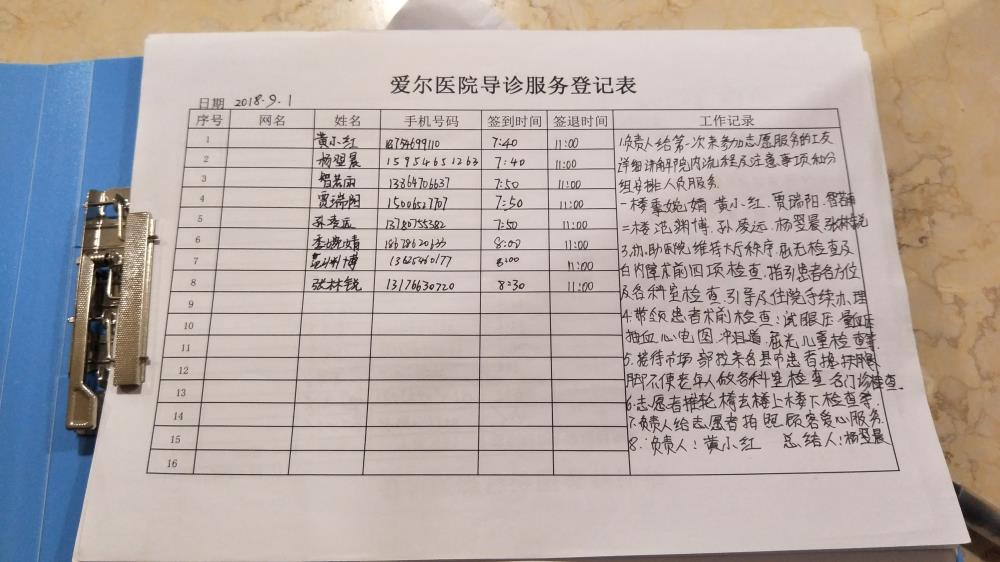 爱尔医院导诊服务登记表
日期 2018.9.1
序号 网名 姓名 手机号码 签到时间 签退时间 工作记录
1 黄小红 7:40 11:00
2 杨翌晨 15954651263 7:40 11:00
3 智若雨 13864706637 7:50 11:00
4 贾瑞阳 7:50 11:00
5 孙凌远 13780755382 7:50 11:00
6 8:00 11:00
7 范渊博 8:00 11:00
8 张林锐 13176630720 8:30 11:00
9
10
11
12
13
14
15
16
1.负责人给第一次来参加志愿服务的工友
详细讲解院内流程及注意事项和分
组安排人员服务.
一楼 婉婧 黄小红.贾瑞阳.智若雨
二楼 范渊博.孙凌远 杨翌晨 张林锐
3.协助医院维持大厅秩序.屈光检查及
白内障术前四项检查.指引患者各方位
及各科室检查.引导及住院手续办理
4.带领患者术前检查:测眼压.量血压
抽血心电图.冲泪道.屈光儿童检查等.
5.接待市场部拉来各县市患者 扶腿
脚不便老年人做各科室检查.各门诊检查.
6.志愿者推轮椅去楼上楼下检查等.
7.负责人给志愿者拍照顾客爱心服务.
8.负责人:黄小红 总结人:杨翌晨